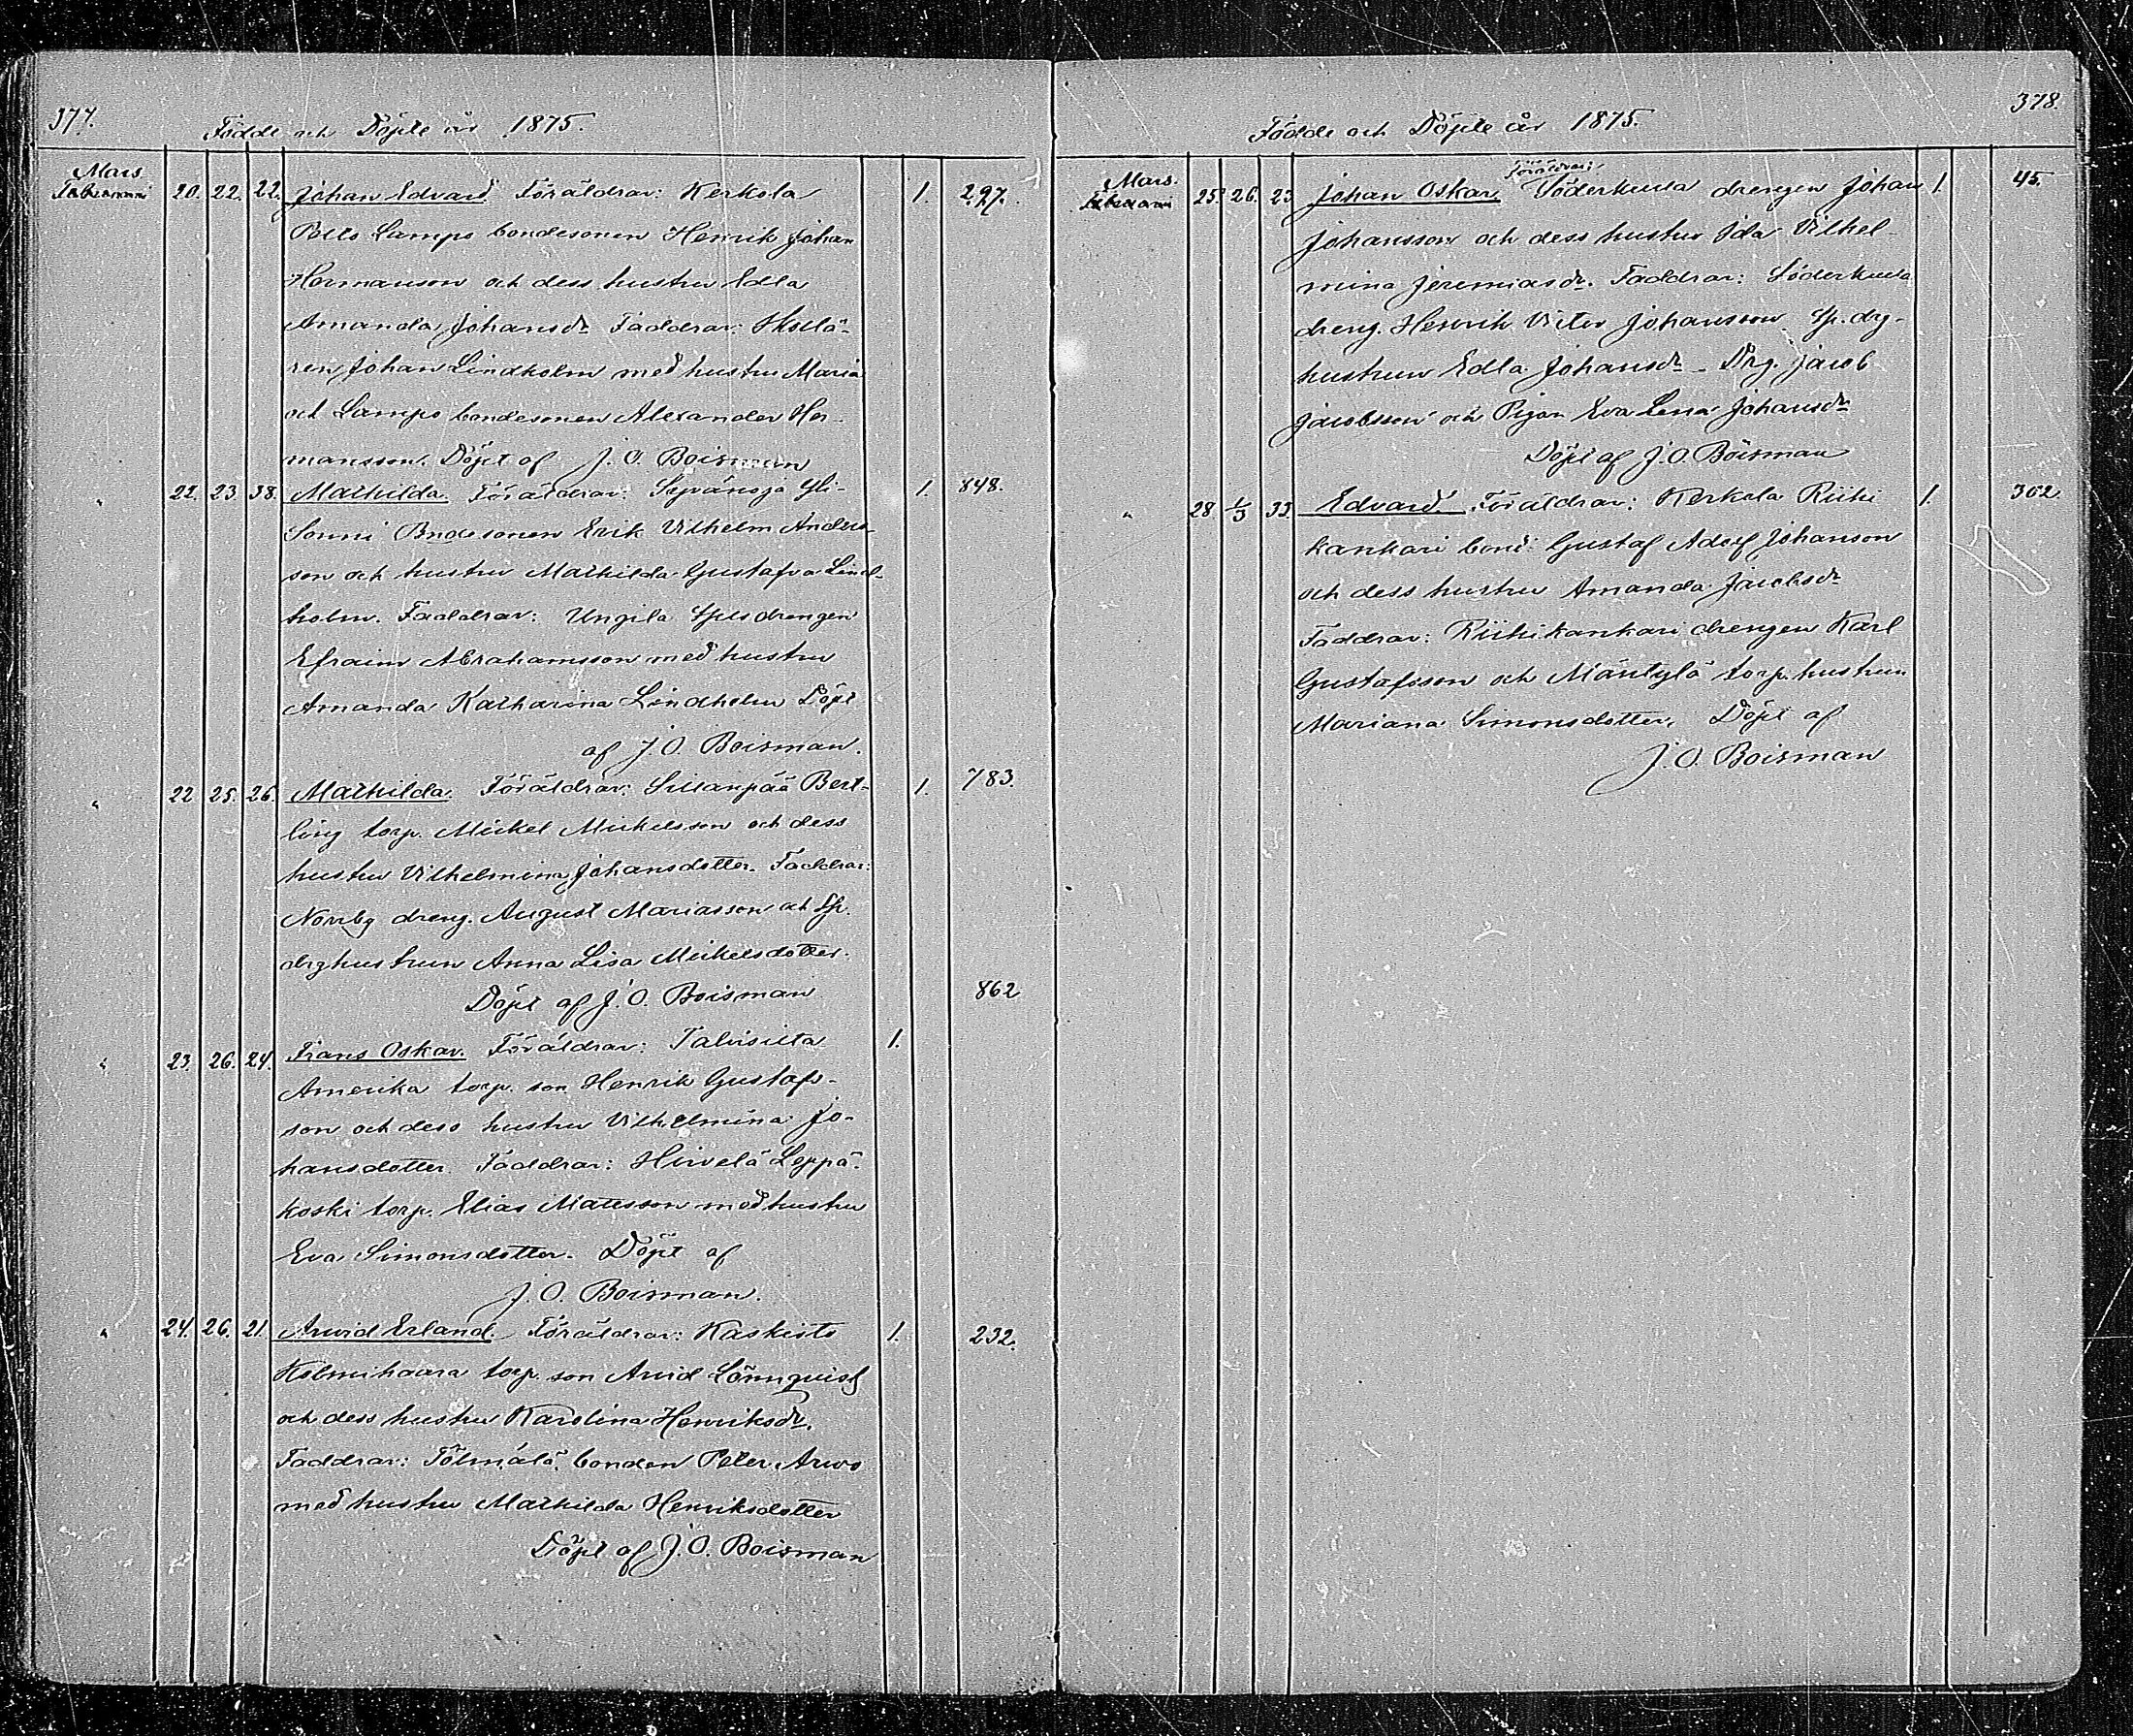 377.
Födde och Döpte år 1875.
Mars
Februarii 20. 22. 22. Johan Edvard. Föräldrar: Kerkola 1. 297.
Pello Lampo bondesonen Henrik Johan
Hermanson och dess hustru Edla
Amanda Johansdr Faddrar:
ren Johan Lindholm med hustru Maria
och Lampo bondesonen Alexander Her-
mansson. Döpt af J. O. Boisman
" 22. 23. 38. Mathilda. Föräldrar: Syvänoja Yli- 1. 848.
Sonni Bndesonen Erik Vilhelm Anders-
son och hustru Mathilda Gustafva Lind-
holm. Faddrar: Ungila Spusdrengen
Efraim Abrahamsson med hustru
Amanda Katharina Lindholm Döpt
af J. O. Boisman.
" 22 25. 26. Mathilda. Föräldrar: Sillanpää Bert- 1. 783.
ling torp. Mickel Mickelsson och dess
hustru Vilhelmina Johansdotter. Faddrar:
Norrby dreng. August Mariasson och Sp.
drghustrun Anna Lisa Mickelsdotter.
Döpt af J. O. Boisman 862
" 23. 26. 24. Frans Oskar. Föräldrar: Talvisilta 1.
Amerika torp. son Henrik Gustafs-
son och dess hustru Vilhelmina Jo-
hansdotter. Faddrar: Hirvelä Leppä-
koski torp. Elias Matsson med hustru
Eva Simonsdotter. Döpt af
J. O. Boisman.
" 24. 26. 21. Arvid Erland. Föräldrar: Kaskisto 1. 232.
Kolmihaara torp. son Arvid Lönnqvist
och dess hustru Karolina Henriksdr.
Faddrar: Tölmälä bonden Peter Arvo
med hustru Mathilda Henriksdotter
Döpt af J. O. Boisman
378.
Födde och Döpte år 1875.
Mars. Föräldrar:
Februarii 25. 26. 23 Johan Oskar. Söderkulla drengen Johan 1. 45.
Johansson och dess hustru Ida Vilhel-
mina Jeremiasdr. Faddrar: Söderkulla
dreng. Henrik Victor Johansson Sp. drg-
hustrun Edla Johansdr - Drg. Jacob
Jacobsson och Pigan Eva Lena Johansdr
Döpt af J. O. Boisman
" 28 1/3 33. Edvard. Föräldrar: Kerkola Riihi 1. 302
kankari bond. Gustaf Adolf Johanson
och dess hustru Amanda
Faddrar: Riihikankari drengen Karl
Gustafsson och Mäntylä torp. hustrun
Mariana Simonsdotter. Döpt af
J. O. Boisman